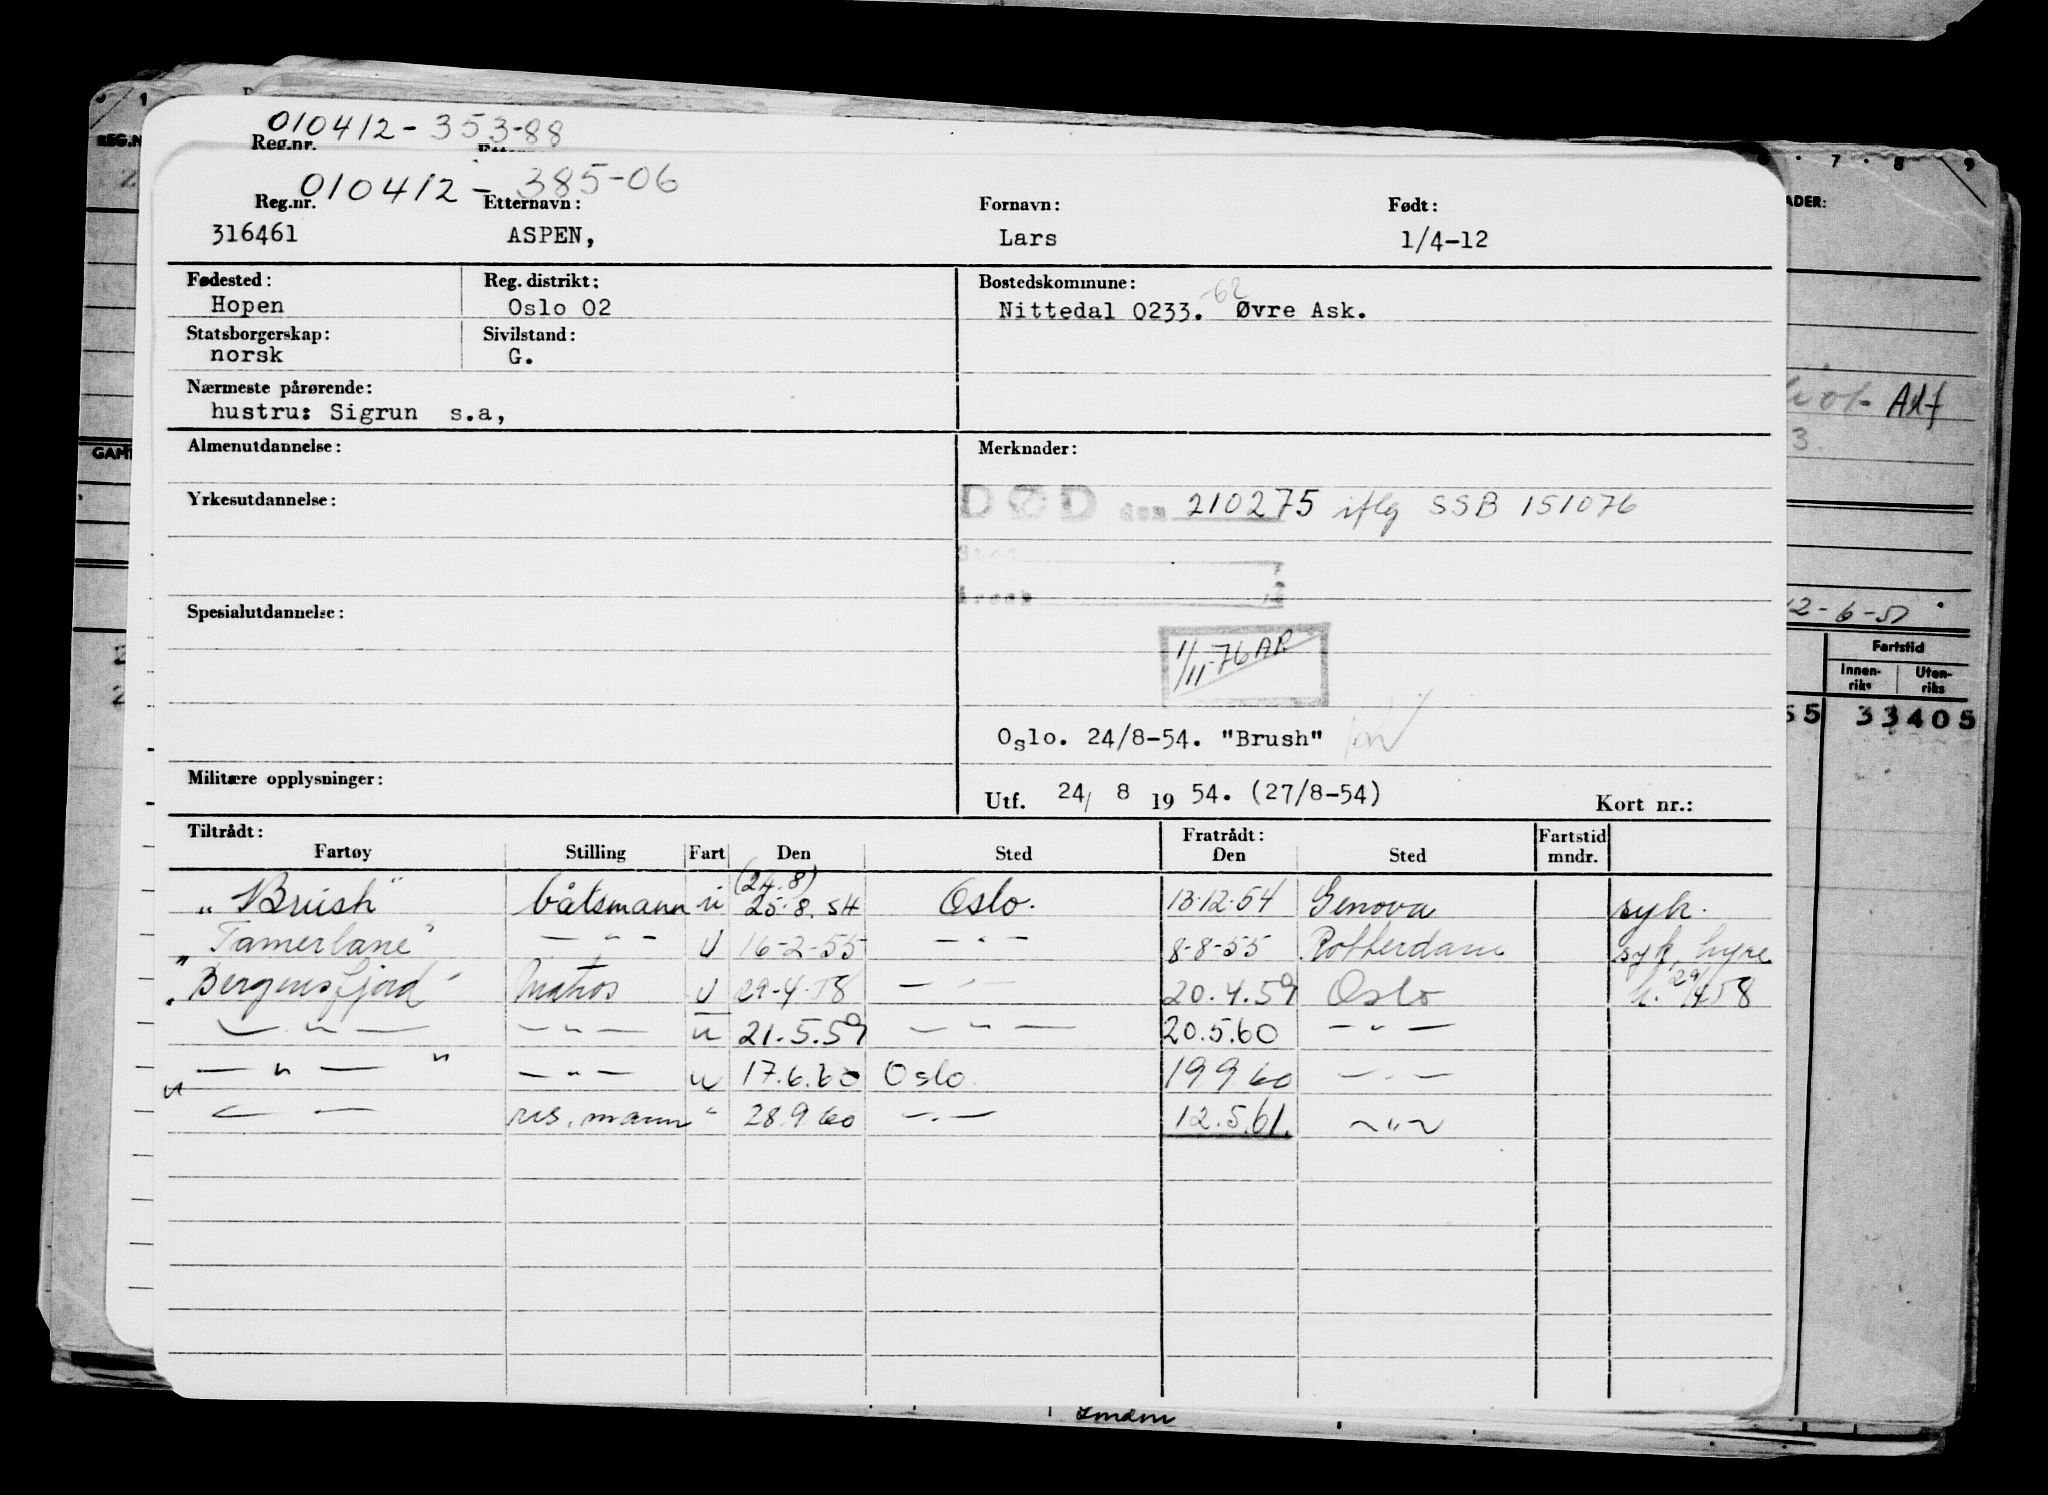 010412-353-88
Reg.nr.
010412-385-06
Reg.nr. Etternavn: Fornavn: Født:
316461 ASPEN, Lars 1/4-12
Fødested: Reg. distrikt: Bostedskommune:
-62
Hopen Oslo 02 Nittedal 0233. Øvre Ask.
Statsborgerskap: Sivilstand:
norsk G.
Nærmeste pårørende:
hustru: Sigrun s.a,
Almenutdannelse: Merknader:
Yrkesutdannelse:
DØD den 210275 iflg SSB 151076
Årsak
Spesialutdannelse:
1/11-76 AR
Oslo. 24/8-54. "Brush"
Militære opplysninger:
Utf. 24/ 8 19 54. (27/8-54) Kort nr.:
Tiltrådt: Fratrådt: Fartstid
Fartøy Stilling Fart Den Sted Den Sted mndr.
(24.8)
"Brush" båtsmann u 25.8.54 Oslo. 13-12-54 Genova syk.
"Tamerlane" — " — U 16-2-55 — " — 8-8-55 Rotterdam syk, hyre
"Bergensfjord" Matros U 29-4-58 — " — 20.4.59 Oslo h. 29/4 58
— " — — " — u 21.5.59 — " — 20.5.60 — " —
— " — " — " — u 17.6.60 Oslo 19 9 60 — " —
" — — res. mann " 28 9 60 — " — 12.5.61. ~ " ~
REG.N
GAM
ADER:
7 8 9
Alf
3.
12-6-51
Fartstid
Innen-riks Uten-riks
55 33405